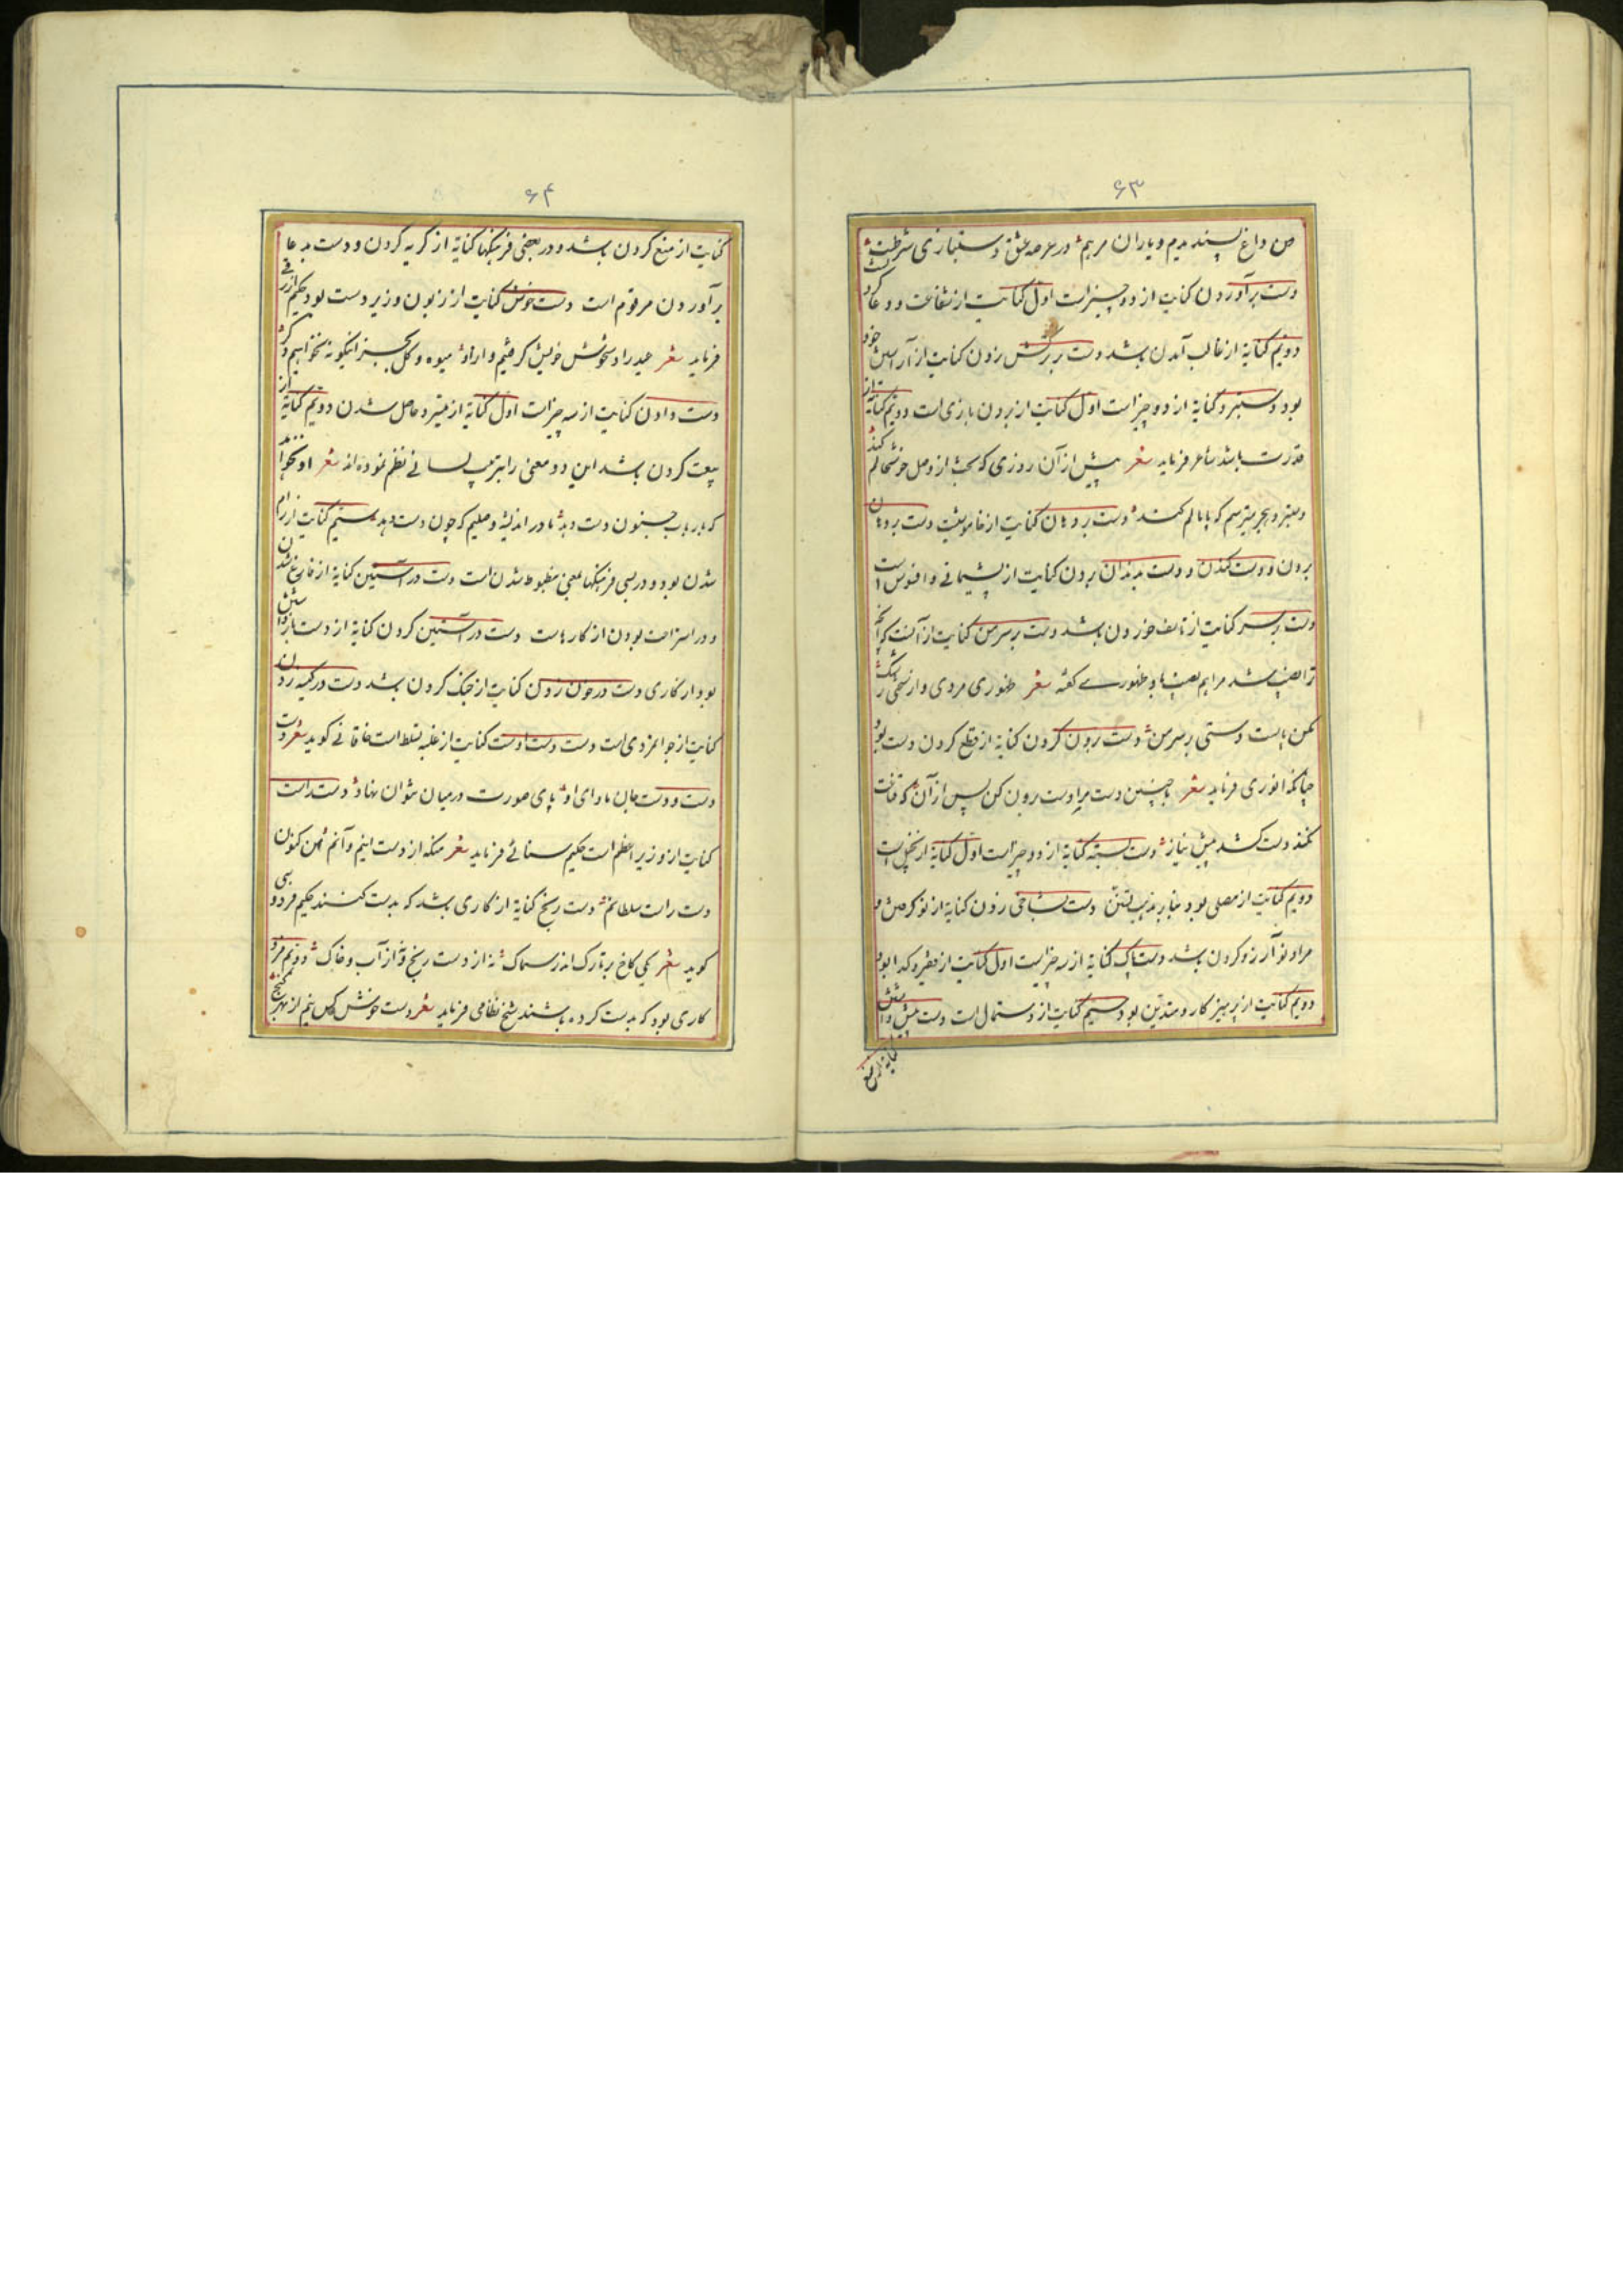 ۶۳
من داغ پسندیدم و یاران مرهم در عرصه عشق دستبازی شرطست
دست برآوردن کنایت از دو چیز است اول کنایت از شفاعت و دعا کردن
دویم کنایة از غالب آمدن باشد دست بر ترکش زدن کنایت از آراستن خود
بود دستبرد کنایة از دو چیز است اول کنایت از بردن بازی است دویم کنایة از
قدرت باشد شاعر فرماید شعر پیش از آن روزی که بحث از وصل خوشحالم کند
دستبرد هجر میترسم که پامالم کند دست بر دهان کنایت از خاموشیت دست بر دهان
بردن و دست کندن و دست بدندان بردن کنایت از پشیمانی و افسوس است
دست بر سر کنایت از تاسف خوردن باشد دست بر سر من کنایت از آنست که آنچه
ترا نصیب شد مرا هم نصیب باد ظهوری گفته شعر ظهوری مردی و از سخت
مکن پاپست دستی بر سر من دست برون کردن کنایة از قطع کردن دست بود
چنانکه انوری فرماید شعر با چنین دست مرا دست برون کن پس از آن که قناعت
نکند دست کشد پیش نیاز دست بسته کنایة از دو چیز است اول کنایة از بخیل است
دویم کنایت از مصلی بود بنابر مذهب تسنن دست بشاخی زدن کنایة از نوکر شدن و
مراد نو آرزو کردن باشد دست پاک کنایة از سه چیز است اول کنایت از فقیر و گدا بود
دویم کنایت از پرهیز کار و متدین بود سیم کنایت از دستمال است دست پیش داشتن
کنایة از منع
۶۴
کنایت از منع کردن باشد و در بعضی فرهنگها کنایة از گریه کردن و دست بدعا
برآوردن مرقوم است دست خوش کنایت از زبون و زیر دست بود حکیم ازرقی
فرماید شعر صید را دستخوش خویش گرفتیم و ارادهٔ میوه و گل بجز اینگونه نخواهیم دگر
دست دادن کنایت از سه چیز است اول کنایة از میسر و حاصل شدن دویم کنایة از
بیعت کردن باشد این دو معنی را بترتیب لسانی نظم نموده اند شعر او نخواند
که بارباب جنون دست دهد ما در اندیشه وصلیم که چون دست دهد سیم کنایت از رام
شدن بود و در بسی فرهنگها بمعنی مضبوط شدن است دست در آستین کنایة از فارغ شدن
و در استراحت بودن از کارهاست دست در آستین کردن کنایة از دست برداشتن
بود از کاری دست در خون زدن کنایت از جنگ کردن باشد دست در کیسه زدن
کنایت از جوانمردی است دست دست اوست کنایت از غلبه تسلط است خاقانی گوید شعر دست
دست و دست جان ماوای او پای صورت در میان نتوان نهاد دست راست
کنایت از وزیر اعظم است حکیم سنائی فرماید شعر منکه از دست اینم و آنم من کنون
دست راست سلطانم دست رنج کنایة از کاری باشد که بدست کنند حکیم فردوسی
گوید شعر یکی کاخ بر تارک اندر سماک نه از دست رنج و نه از آب و خاک دویم مزد
کاری بود که بدست کرده باشند شیخ نظامی فرماید شعر دست خوش کس نیم از بهر گنج